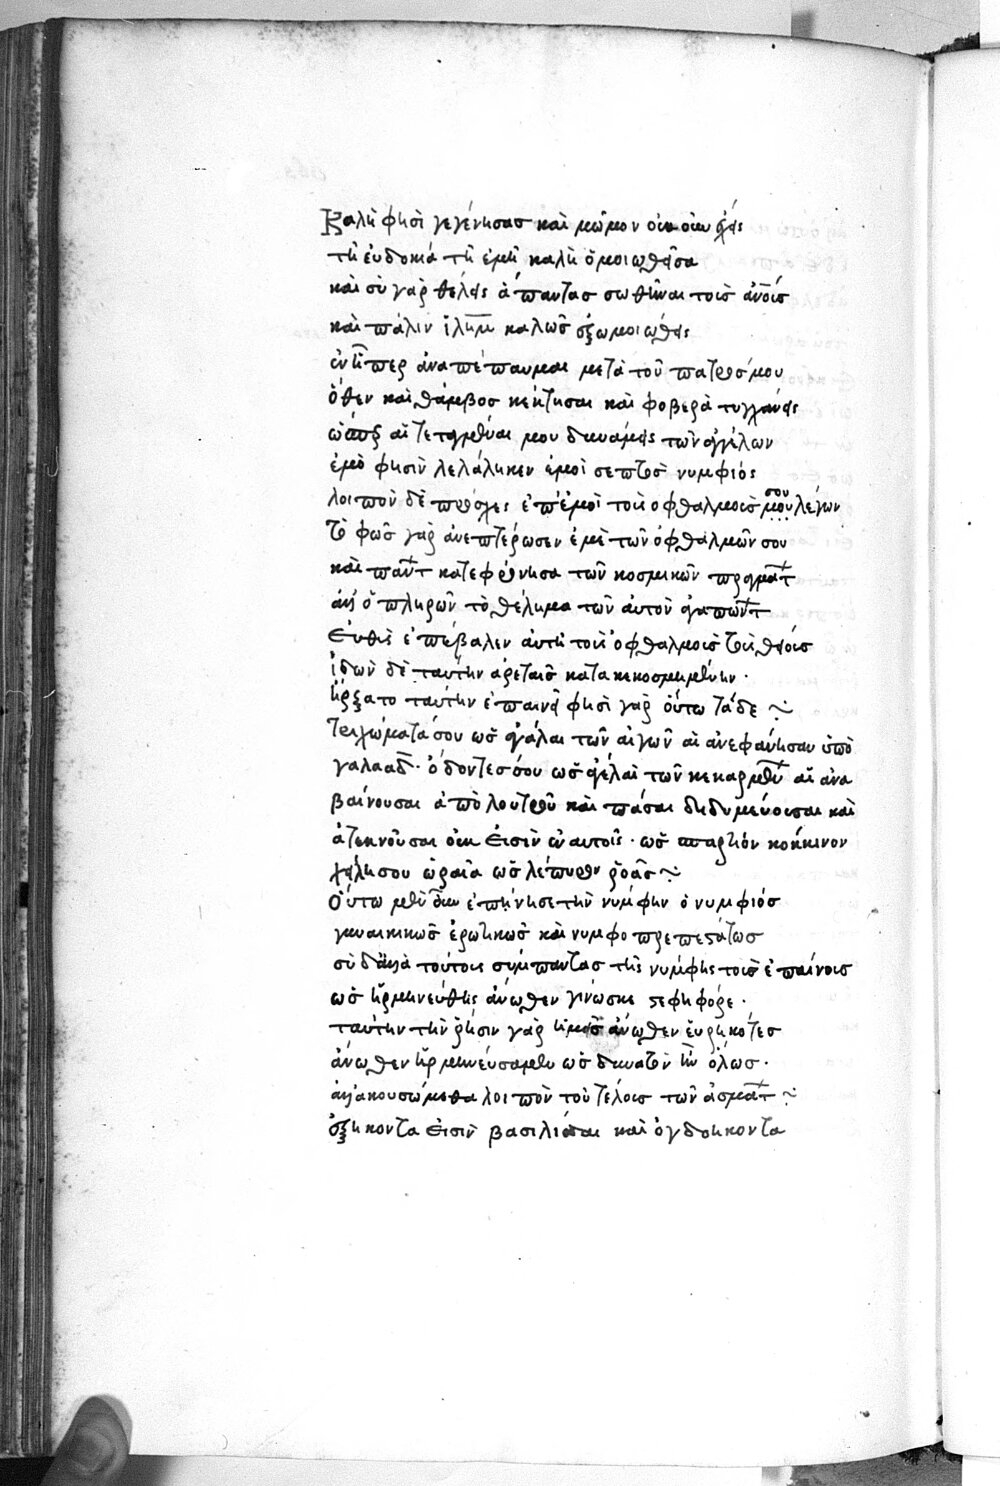 Καλὴ φησὶ γεγένησαι καὶ μῶμον οὐκ ἔχεις
τῇ εὐδοκίᾳ τῇ ἐμῇ καλὴ ὁμοιωθεῖσα
καὶ σὺ γὰρ θέλεις ἅπαντας σωθῆναι τοὺς ἀν̅ο̅υς
καὶ πάλιν ἱλημ καλῶς ἐξωμοιώθης
ἐν ᾗπερ ἀναπέπαυμαι μετὰ τοῦ πατρός μου
ὅθεν καὶ θάμβος κέκτησαι καὶ φοβερὰ τυγχάνεις
ὥσπερ αἱ τεταγμέναι μου δυνάμεις τῶν ἀγγέλων
ἐμὸ φησὶν λελάληκεν ἐμοὶ σεπτὸς νυμφίος
λοιπὸν δὲ πρόσχες ἐπ' ἐμοὶ τοῖς ὀφθαλμοῖς μου σου λέγων
τὸ φῶς γὰρ ἀνεπτέρωσεν ἐμὲ τῶν ὀφθαλμῶν σου
καὶ πάντ κατεφρόνησα τῶν κοσμικῶν πραγμάτ
ἀλλ' ὁ πληρῶν τὸ θέλημα τῶν αὐτὸν ἀγαπώντ
Εὐθὺς ἐπέβαλεν αὐτῇ τοῖς ὀφθαλμοῖς τοῖς θείοις
ἰδὼν δὲ ταύτην ἀρεταῖς κατακεκοσμημένην ·
ἤρξατο ταύτην ἐπαινεῖν φησὶ γὰρ οὕτω τάδε ~
τριχώματά σου ὡς ἀγέλαι τῶν αἰγῶν αἳ ἀνεφάνησαν ὑπὸ
γαλαάδ · ὀδόντες σου ὡς ἀγέλαι τῶν κεκαρμέν αἳ ἀνα
βαίνουσαι ἀπὸ λουτροῦ καὶ πᾶσαι διδυμεύουσαι καὶ
ἀτεκνοῦσαι οὐκ εἰσὶν ἐν αὐτοῖς · ὡς σπαρτίον κόκκινον
χείλη σου ὡραῖα ὡς λέπυρον ῥοᾶς ~
Οὕτω μὲν οὖν ἐπῄνησε τὴν νύμφην ὁ νυμφίος
γυναικικῶς ἐρωτικῶς καὶ νυμφοπρεπεστάτως
σὺ δ' ἀλλὰ τούτους σύμπαντας τῆς νύμφης τοὺς ἐπαίνους
ὡς ἡρμηνεύθης ἄνωθεν γίνωσκε στεφηφόρε ·
ταύτην τὴν ῥῆσιν γὰρ ἡμεῖς ἄνωθεν εὑρηκότες
ἄνωθεν ἡρμηνεύσαμεν ὡς δυνατὸν ἦν ὅλως ·
ἀλλ' ἀκουσώμεθα λοιπὸν τοῦ τέλους τῶν ἀσμάτ ~
ἑξήκοντα εἰσὶν βασίλισσαι καὶ ὀγδοήκοντα